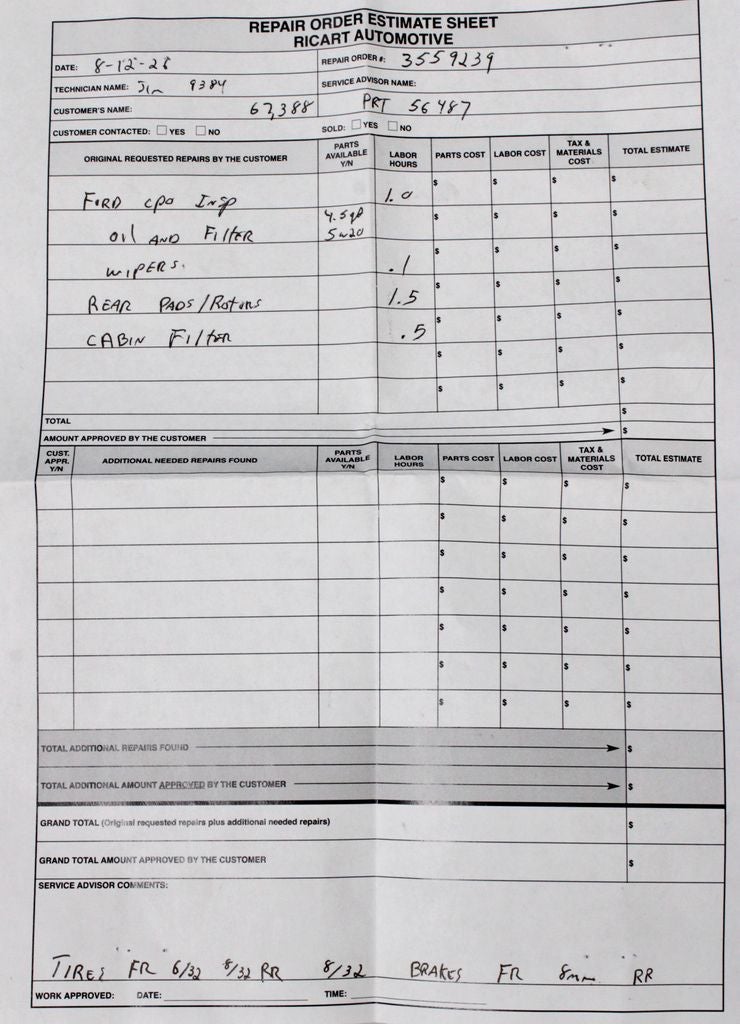 REPAIR ORDER ESTIMATE SHEET
RICART AUTOMOTIVE
DATE: 8-12-2 REPAIR ORDER #: 3559239
TECHNICIAN NAME: Jim 9384 SERVICE ADVISOR NAME:
CUSTOMER'S NAME: 67,388 PRT 56487
CUSTOMER CONTACTED: YES NO SOLD: YES NO
ORIGINAL REQUESTED REPAIRS BY THE CUSTOMER PARTS AVAILABLE Y/N LABOR HOURS PARTS COST LABOR COST TAX & MATERIALS COST TOTAL ESTIMATE
FORD CPO Insp 1.0 $ $ $ $
Oil AND Filter 4.5qt 5w20 $ $ $ $
WIPERS. .1 $ $ $ $
REAR PADS/Rotors 1.5 $ $ $ $
CABIN Filter .5 $ $ $ $
$ $ $ $
$ $ $ $
TOTAL $
AMOUNT APPROVED BY THE CUSTOMER $
CUST. APPR. Y/N ADDITIONAL NEEDED REPAIRS FOUND PARTS AVAILABLE Y/N LABOR HOURS PARTS COST LABOR COST TAX & MATERIALS COST TOTAL ESTIMATE
$ $ $ $
$ $ $ $
$ $ $ $
$ $ $ $
$ $ $ $
$ $ $ $
$ $ $ $
TOTAL ADDITIONAL REPAIRS FOUND $
TOTAL ADDITIONAL AMOUNT APPROVED BY THE CUSTOMER $
GRAND TOTAL (Original requested repairs plus additional needed repairs) $
GRAND TOTAL AMOUNT APPROVED BY THE CUSTOMER $
SERVICE ADVISOR COMMENTS:
TIRES FR 6/32 8/32 RR 8/32 BRAKES FR 8mm RR
WORK APPROVED: DATE: TIME: